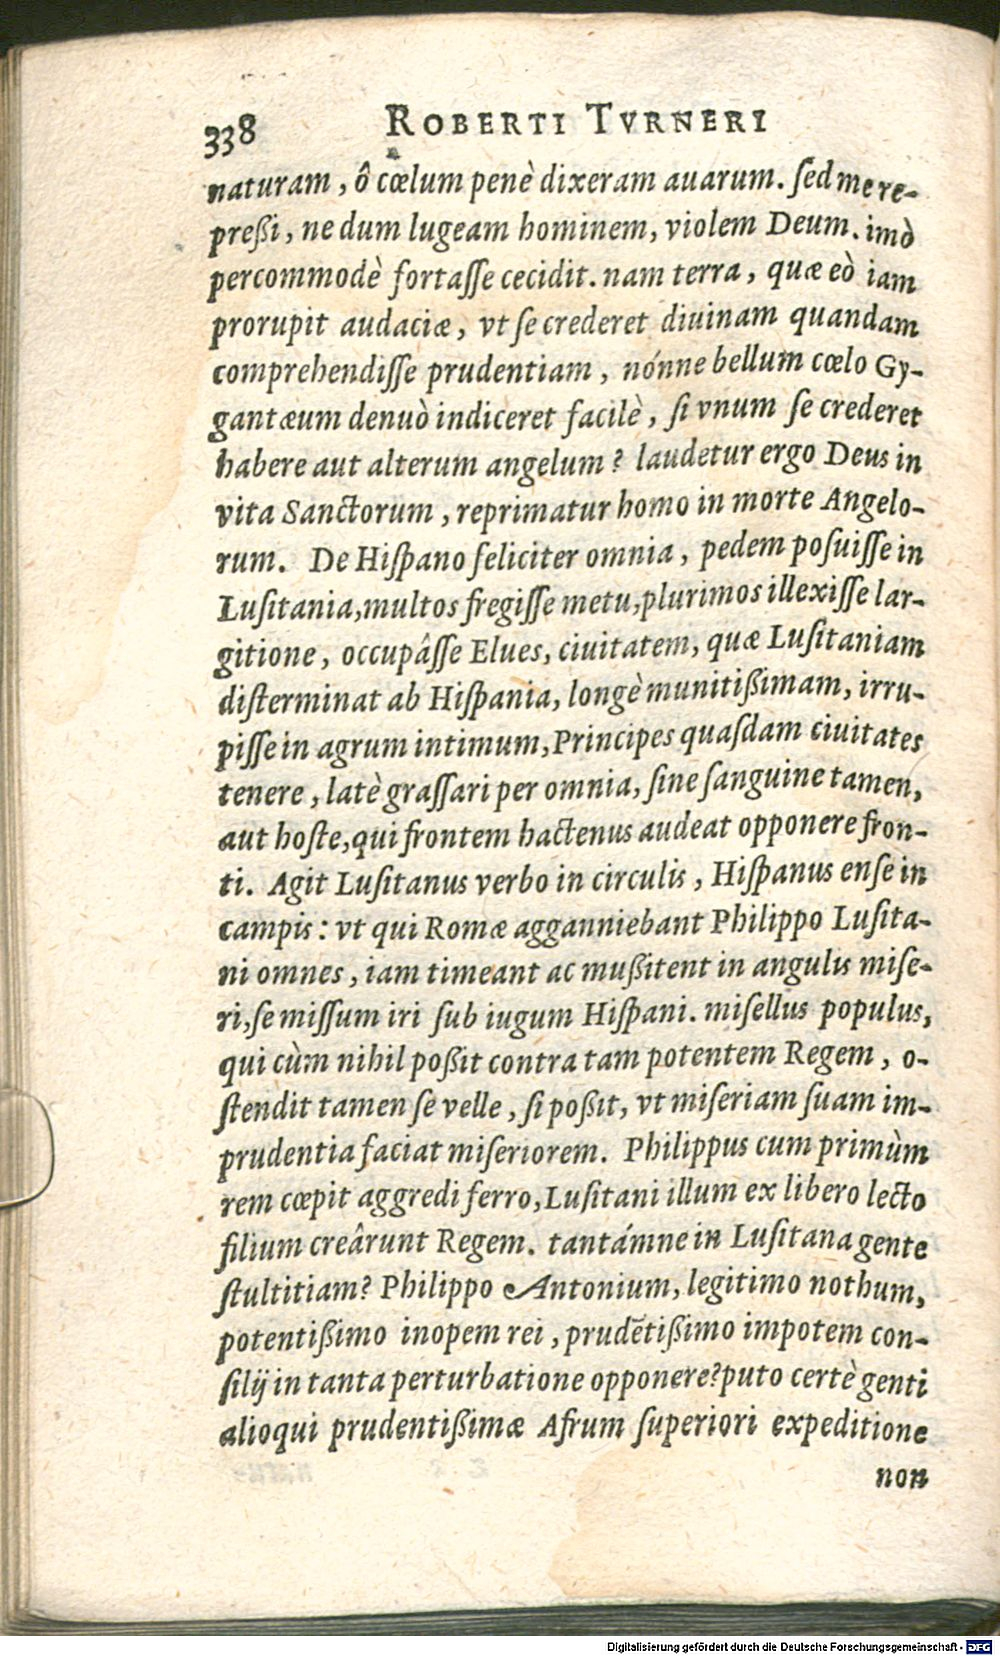 338 ROBERTI TVRNERI
naturam, ô cœlum penè dixeram auarum. ſed me re-
preßi, ne dum lugeam hominem, violem Deum. imò
percommodè fortaſſe cecidit. nam terra, quæ eò iam
prorupit audaciæ, vt ſe crederet diuinam quandam
comprehendiſſe prudentiam, nónne bellum cœlo Gy-
gantæum denuò indiceret facilè, ſi vnum ſe crederet
habere aut alterum angelum? laudetur ergo Deus in
vita Sanctorum, reprimatur homo in morte Angelo-
rum. De Hiſpano feliciter omnia, pedem poſuiſſe in
Luſitania, multos fregiſſe metu, plurimos illexiſſe lar-
gitione, occupâſſe Elues, ciuitatem, quæ Luſitaniam
diſterminat ab Hiſpania, longè munitißimam, irru-
piſſe in agrum intimum, Principes quaſdam ciuitates
tenere, latè graſſari per omnia, ſine ſanguine tamen,
aut hoſte, qui frontem hactenus audeat opponere fron-
ti. Agit Luſitanus verbo in circulis, Hiſpanus enſe in
campis: vt qui Romæ agganniebant Philippo Luſita-
ni omnes, iam timeant ac mußitent in angulis miſe-
ri, ſe miſſum iri ſub iugum Hiſpani. miſellus populus,
qui cùm nihil poßit contra tam potentem Regem, o-
ſtendit tamen ſe velle, ſi poßit, vt miſeriam ſuam im-
prudentia faciat miſeriorem. Philippus cum primùm
rem cœpit aggredi ferro, Luſitani illum ex libero lecto
filium creârunt Regem. tantámne in Luſitana gente
ſtultitiam? Philippo Antonium, legitimo nothum,
potentißimo inopem rei, prudẽtißimo impotem con-
ſilij in tanta perturbatione opponere? puto certè genti
alioqui prudentißimæ Afrum ſuperiori expeditione
non
Digitalisierung gefördert durch die Deutsche Forschungsgemeinschaft - DFG